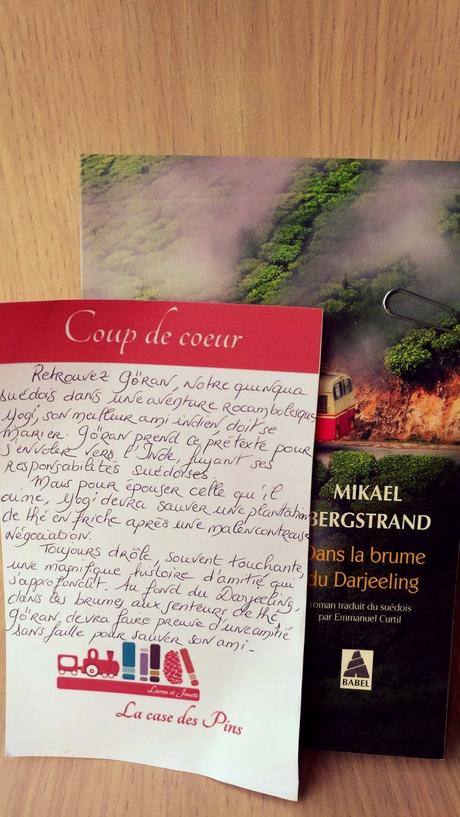 Coup de coeur
Retrouvez Göran, notre quinqua
suédois dans une aventure rocambolesque,
Yogi, son meilleur ami indien, doit se
marier. Göran prend ce prétexte pour
s'envoler vers l'Inde, fuyant ses
responsabilités suédoises.
Mais pour épouser celle qu'il
aime, Yogi devra sauver une plantation
de thé en friche après une malencontreuse
négociation.
Toujours drôle, souvent touchante,
une magnifique histoire d'amitié qui
s'approfondit. Au fond du Darjeeling,
dans les brumes aux senteurs de thé,
Göran devra faire preuve d'une amitié
sans faille pour sauver son ami.
Livres et Jouets
La case des Pins
MIKAEL
BERGSTRAND
Dans la brume
du Darjeeling
roman traduit du suédois
par Emmanuel Curtil
BABEL